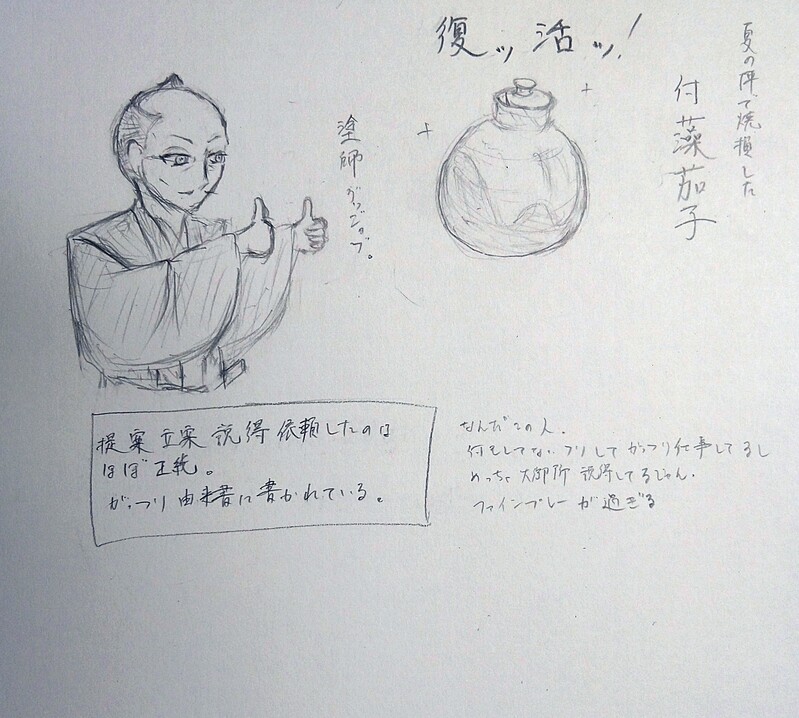 復ッ活ッ!
夏の陣で焼損した
付藻茄子
塗師がっジョブ。
提案 立案 説得 依頼したのは
ほぼ正純。
がっつり由来書に書かれている。
なんだこの人.
何もしてないフリしてがっつり仕事してるし
めっちゃ大御所説得してるじゃん.
ファインプレーが過ぎる